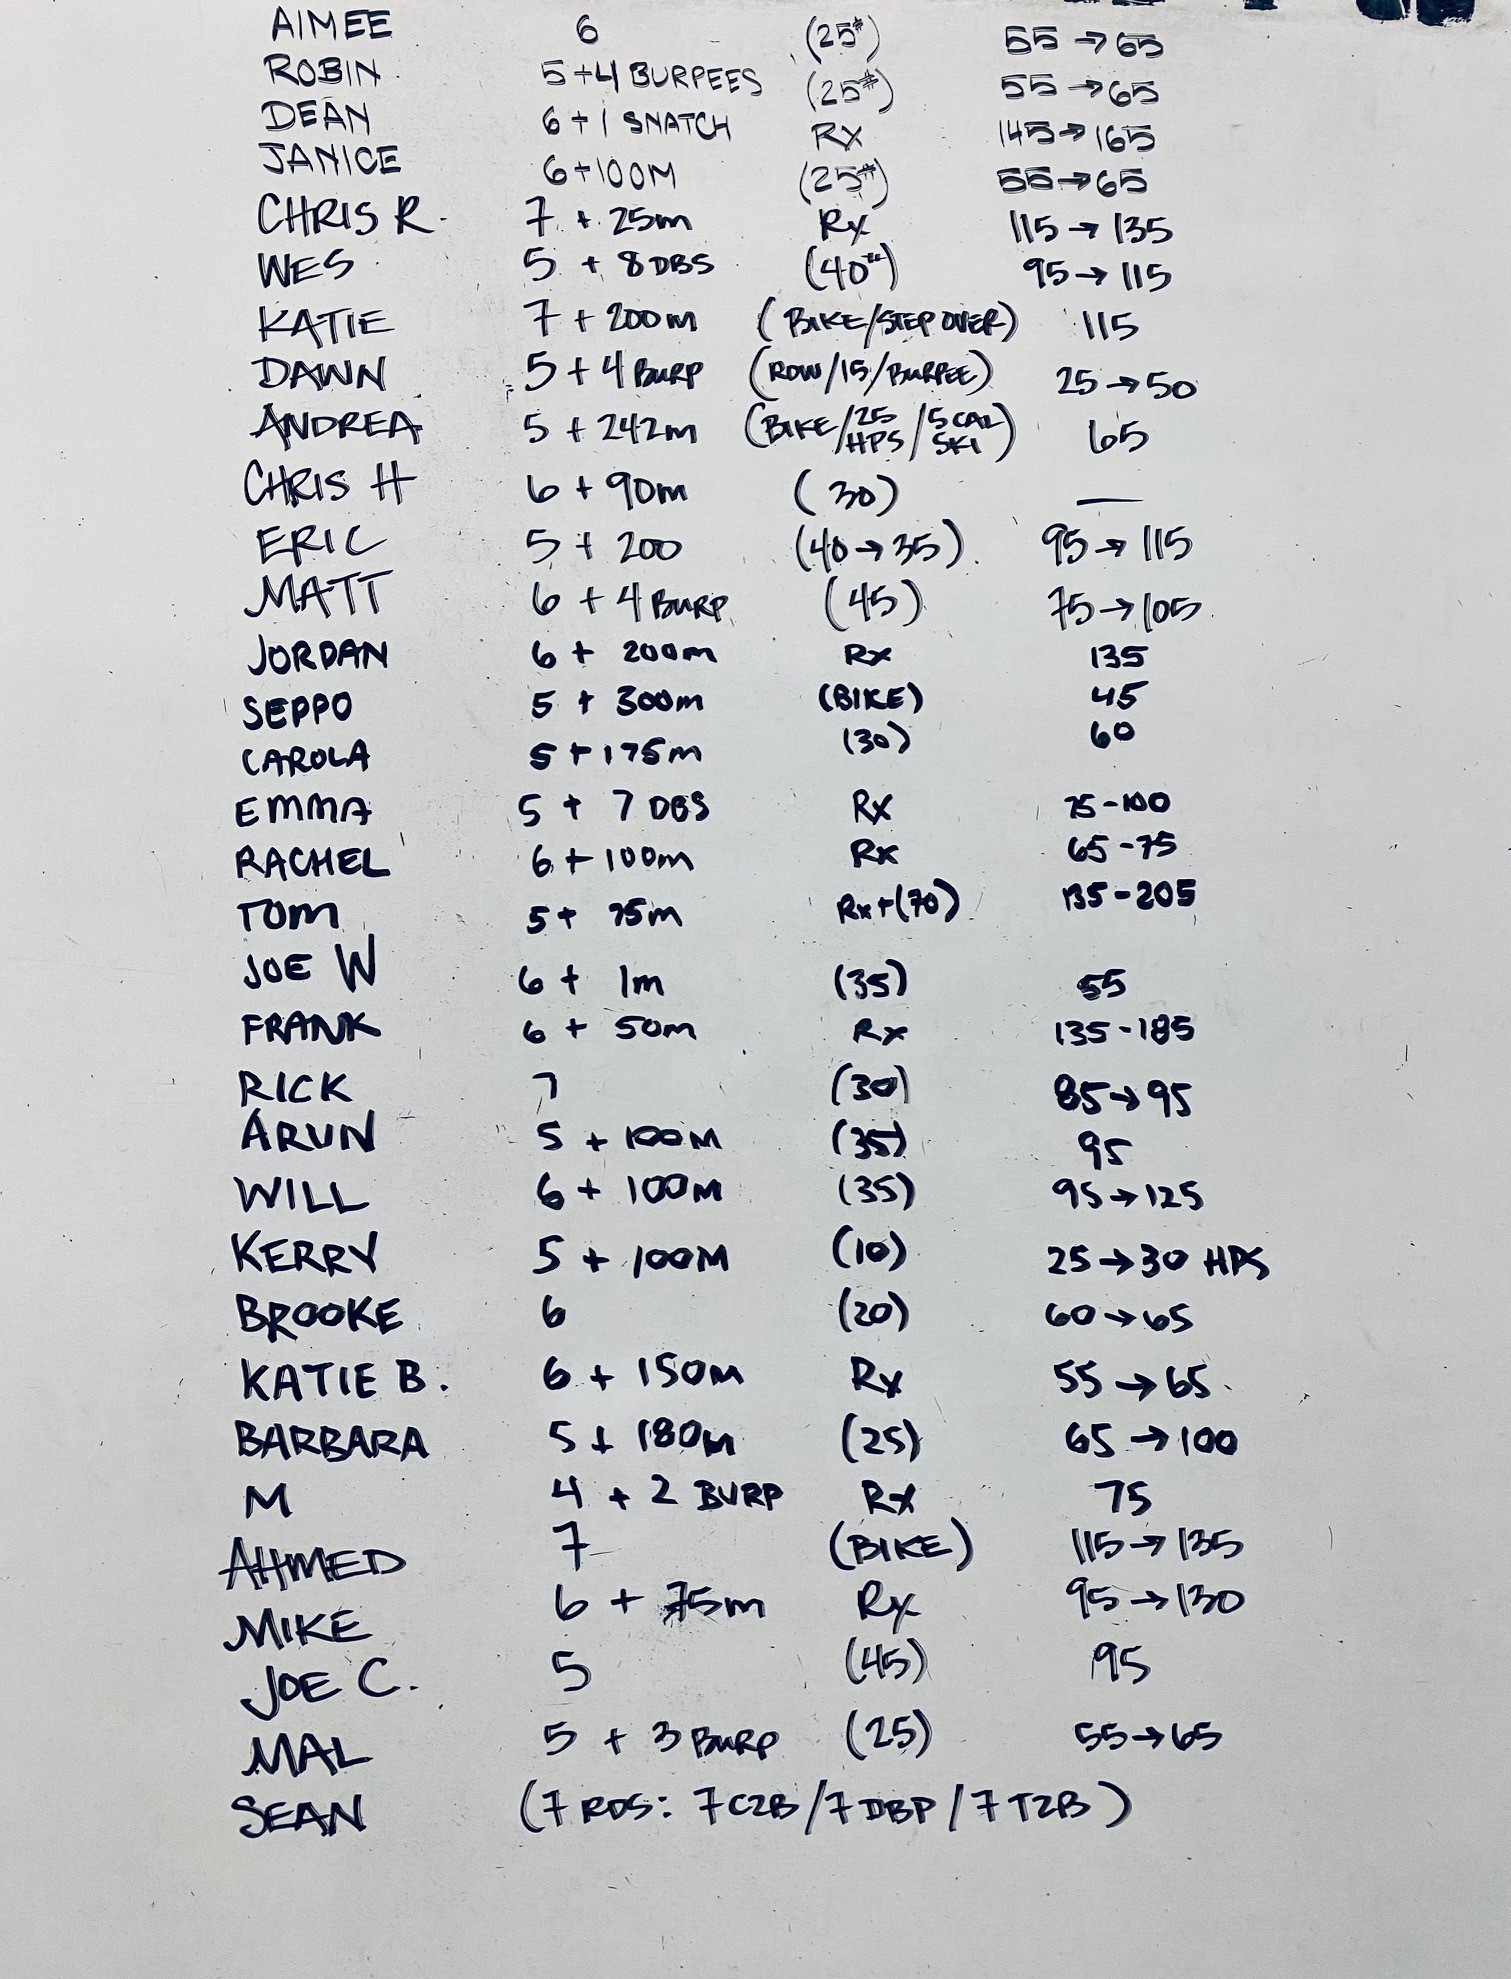 AIMEE 6 (25#) 55 → 65
ROBIN 5+4 BURPEES (25#) 55 → 65
DEAN 6+1 SNATCH Rx 145 → 165
JANICE 6+100M (25#) 55 → 65
CHRIS R. 7 + 25m Rx 115 → 135
WES 5 + 8 DBS (40#) 95 → 115
KATIE 7 + 200m (BIKE/STEP OVER) 115
DAWN 5 + 4 BURP (ROW/15/BURPEE) 25 → 50
ANDREA 5 + 242m (BIKE/25 HPS/5 CAL SKI) 65
CHRIS H 6 + 90m (30) —
ERIC 5 + 200 (40 → 35) 95 → 115
MATT 6 + 4 BURP (45) 75 → 105
JORDAN 6 + 200m Rx 135
SEPPO 5 + 300m (BIKE) 45
CAROLA 5 + 175m (30) 60
EMMA 5 + 7 DBS Rx 75-100
RACHEL 6 + 100m Rx 65-75
TOM 5 + 75m Rx+(70) 135-205
JOE W 6 + 1m (35) 55
FRANK 6 + 50m Rx 135-185
RICK 7 (30) 85 → 95
ARUN 5 + 100M (35) 95
WILL 6 + 100M (35) 95 → 125
KERRY 5 + 100M (10) 25 → 30 HPS
BROOKE 6 (20) 60 → 65
KATIE B. 6 + 150M Rx 55 → 65
BARBARA 5 + 180M (25) 65 → 100
M 4 + 2 BURP Rx 75
AHMED 7 (BIKE) 115 → 135
MIKE 6 + 75m Rx 95 → 130
JOE C. 5 (45) 95
MAL 5 + 3 BURP (25) 55 → 65
SEAN (7 RDS: 7 C2B/7 DBP/7 T2B)